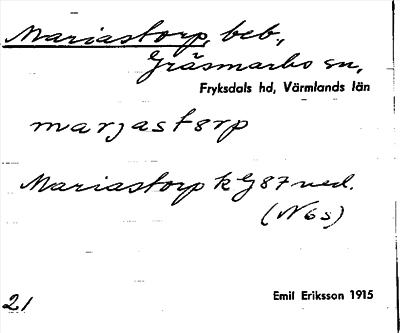 Mariastorp, beb.,
Gräsmarks sn,
Fryksdals hd, Värmlands län
marjastorp
Mariastorp k G 87 ned.
(N6s)
21 Emil Eriksson 1915